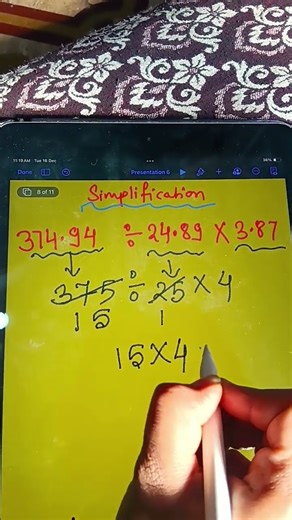 11:19 AM Tue 16 Dec
36%
Done
Presentation 6
8 of 11
Simplification
374.94 ÷ 24.89 × 3.87
375 ÷ 25 × 4
15 1
15 × 4